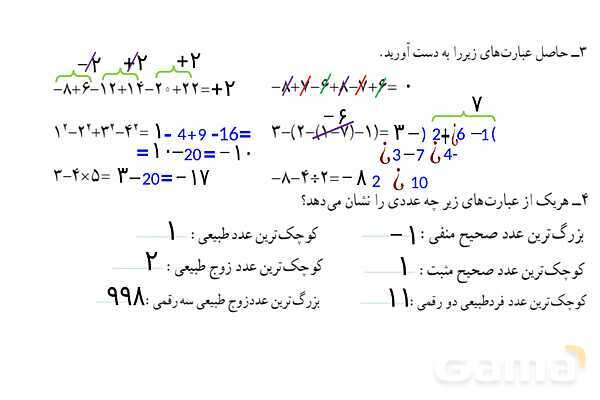 ۳ــ حاصل عبارت‌های زیررا به دست آورید.
-۲ +۲ +۲
-۸+۷-۶+۸-۷+۶= ۰
-۸+۶-۱۲+۱۴-۲۰+۲۲=+۲
-۶ ۷
۳-(۲-(۱-۷)-۱)= ۳-) 2+¿6 -1(
۱²-۲²+۳²-۴²= ۱- 4+9 -16=
¿3-7 ¿4-
=۱۰-20=-۱۰
-۸-۴÷۲=-۸ 2 ¿ 10
۳-۴×۵= ۳-20=-۱۷
۴ــ هریک از عبارت‌های زیر چه عددی را نشان می‌دهد؟
بزرگ‌ترین عدد صحیح منفی : -۱
کوچک‌ترین عدد طبیعی : ۱
کوچک‌ترین عدد صحیح مثبت : ۱
کوچک‌ترین عدد زوج طبیعی : ۲
کوچک‌ترین عدد فردطبیعی دو رقمی : ۱۱
بزرگ‌ترین عددزوج طبیعی سه رقمی : ۹۹۸
Gama